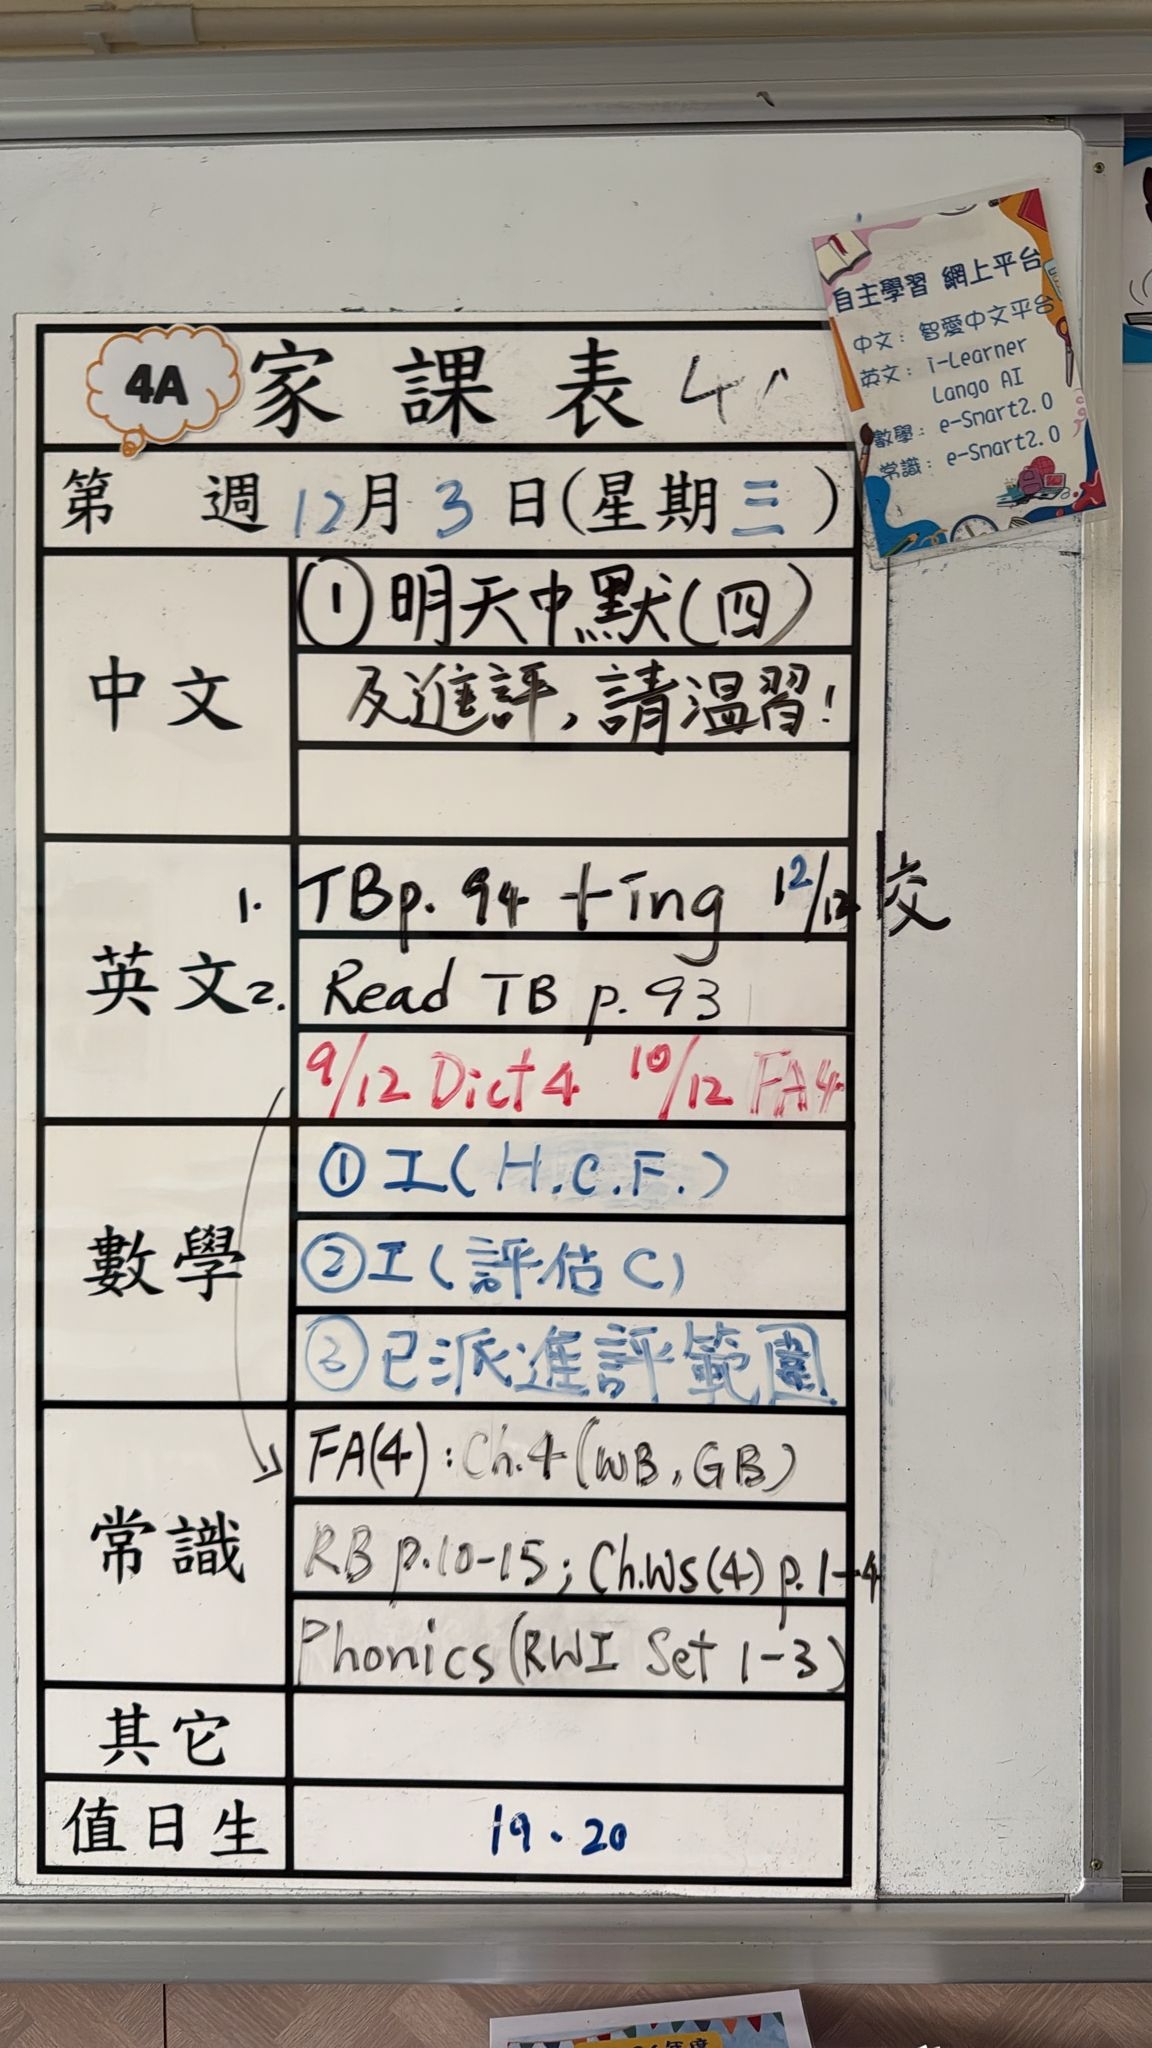 自主學習 網上平台
中文：智愛中文平台
英文：i-Learner
Lango AI
數學：e-Smart2.0
常識：e-Smart2.0
4A 家課表
第 週 12月3日(星期三)
中文
① 明天中默(四)
及進評，請温習!
英文
1. TB p. 94 + ing 12/12 交
2. Read TB p. 93
9/12 Dict 4 10/12 FA4
數學
① 工( H.C.F. )
② 工( 評估 C)
③ 已派進評範圍
常識
FA(4) : Ch.4 (WB, GB)
RB p.10-15; Ch.Ws(4) p.1-4
Phonics (RWI Set 1-3)
其它
值日生
19 . 20
年度